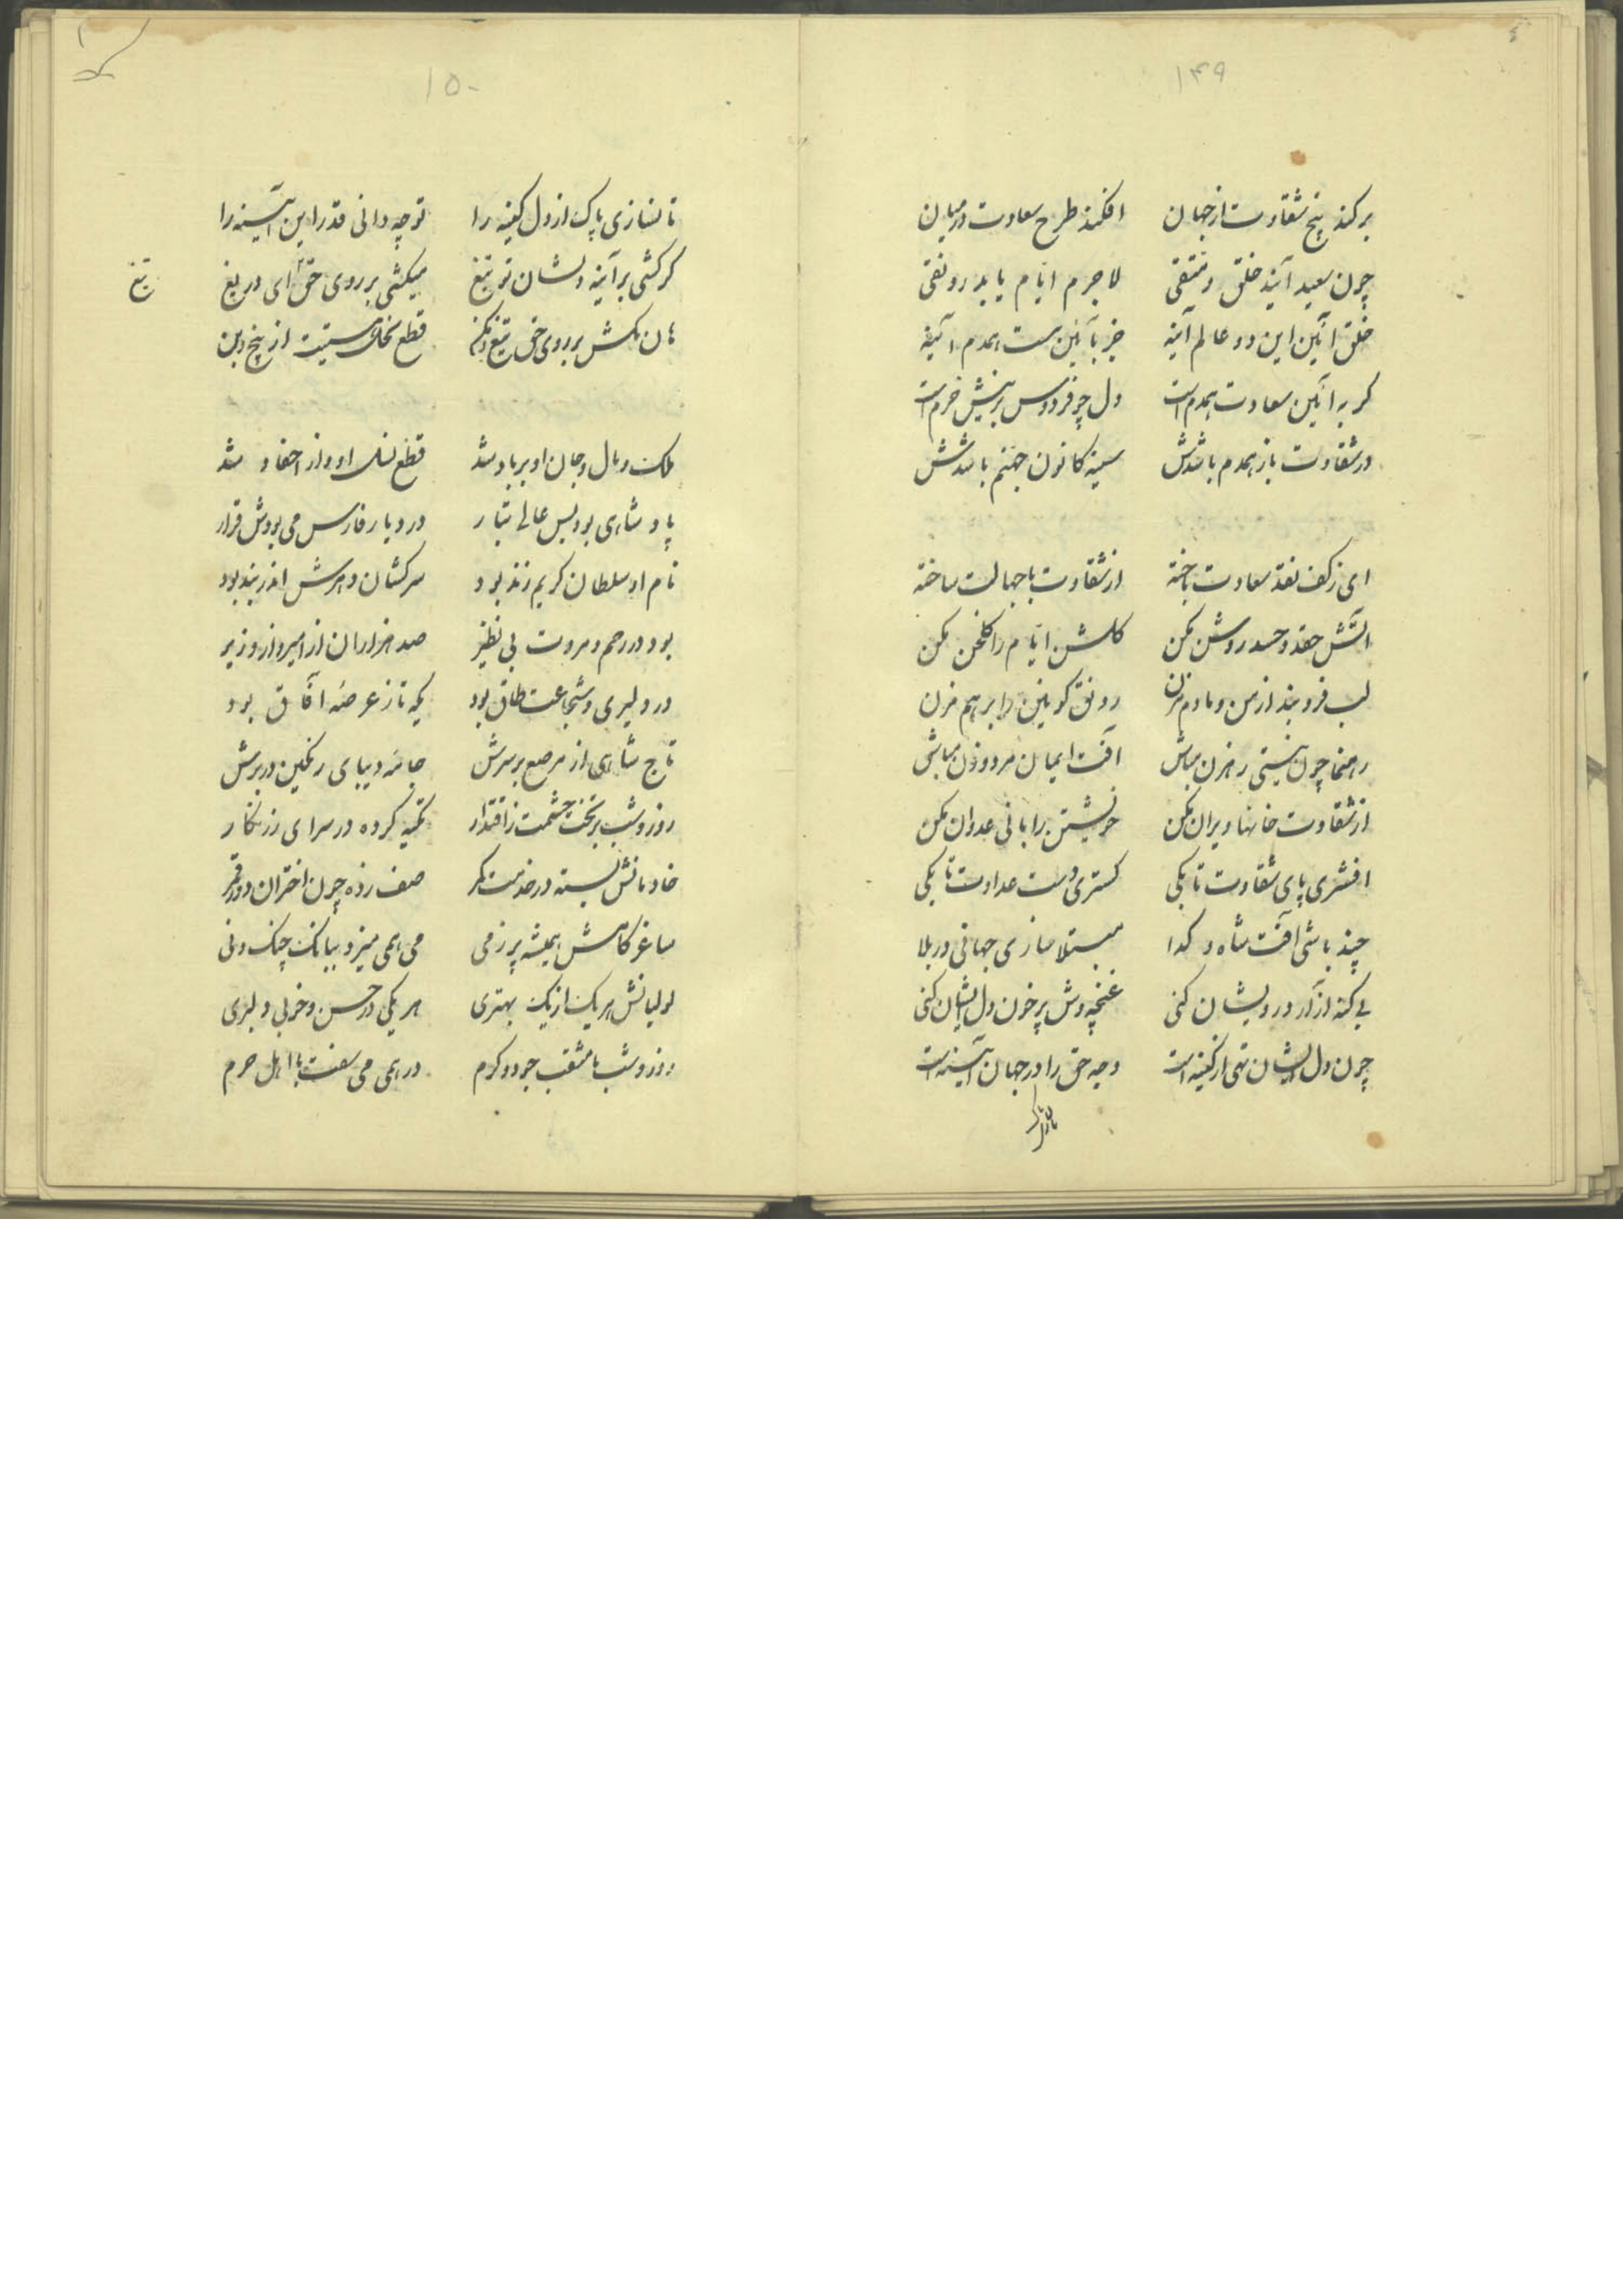 ۱۴۹
بر کند بیخ شقاوت از جهان افکند طرح سعادت در میان
چون سعید آیند خلق و متقی لاجرم ایام یابد رونقی
خلق آئین این دو عالم آینه جز بآئین هست همدم آینه
گر به آئین سعادت همدم است دل چو فردوس برینش خرم است
در شقاوت باز همدم باشدش سینه کانون جهنم باشدش
ای ز کف نقد سعادت باخته از شقاوت با جهالت ساخته
آتش حقد و حسد روشن مکن گلشن ایام را گلخن مکن
لب فرو بند از من و ما دم مزن رونق کونین را بر هم مزن
رهنما چون نیستی رهزن مباش آفت ایمان مرد و زن مباش
از شقاوت خانها ویران مکن خویشتن را بانی عدوان مکن
افشری پای شقاوت تا بکی گستری دست عداوت تا بکی
چند باشی آفت شاه و گدا مبتلا سازی جهانی در بلا
بی گنه آزار درویشان کنی غنچه وش پر خون دل ایشان کنی
چون دل ایشان تهی از کینه است وجه حق را در جهان آئینه است
۱۵۰
تا نسازی پاک از دل کینه را تو چه دانی قدر این آئینه را
گر کشی بر آینه دلشان تو تیغ میکشی بر روی حق ای دریغ تیغ
هان مکش بر روی حق تیغ و مکن قطع نخل هستیت از بیخ و بن
ملک و مال و جان او بر باد شد قطع نسل او و از احفاد شد
پادشاهی بود بس عالی تبار در دیار فارس می بودش قرار
نام او سلطان کریم زند بود سرکشان دهرش اندر بند بود
بود در رحم و مروت بی نظیر صد هزاران از امیر و از وزیر
در دلیری و شجاعت طاق بود یکه تاز عرصهٔ آفاق بود
تاج شاهی از مرصع بر سرش جامهٔ دیبای رنگین در برش
روز و شب بر تخت حشمت ز اقتدار تکیه کرده در سرای زرنگار
خادمانش بسته در خدمت کمر صف زده چون اختران دور قمر
ساغر کامش همیشه پر ز می می همی میزد ببانک چنک و نی
لولیانش هر یک از یک بهتری هر یکی در حسن و خوبی دلبری
روز و شب با مثقب جود و کرم در همی می سفت با اهل حرم